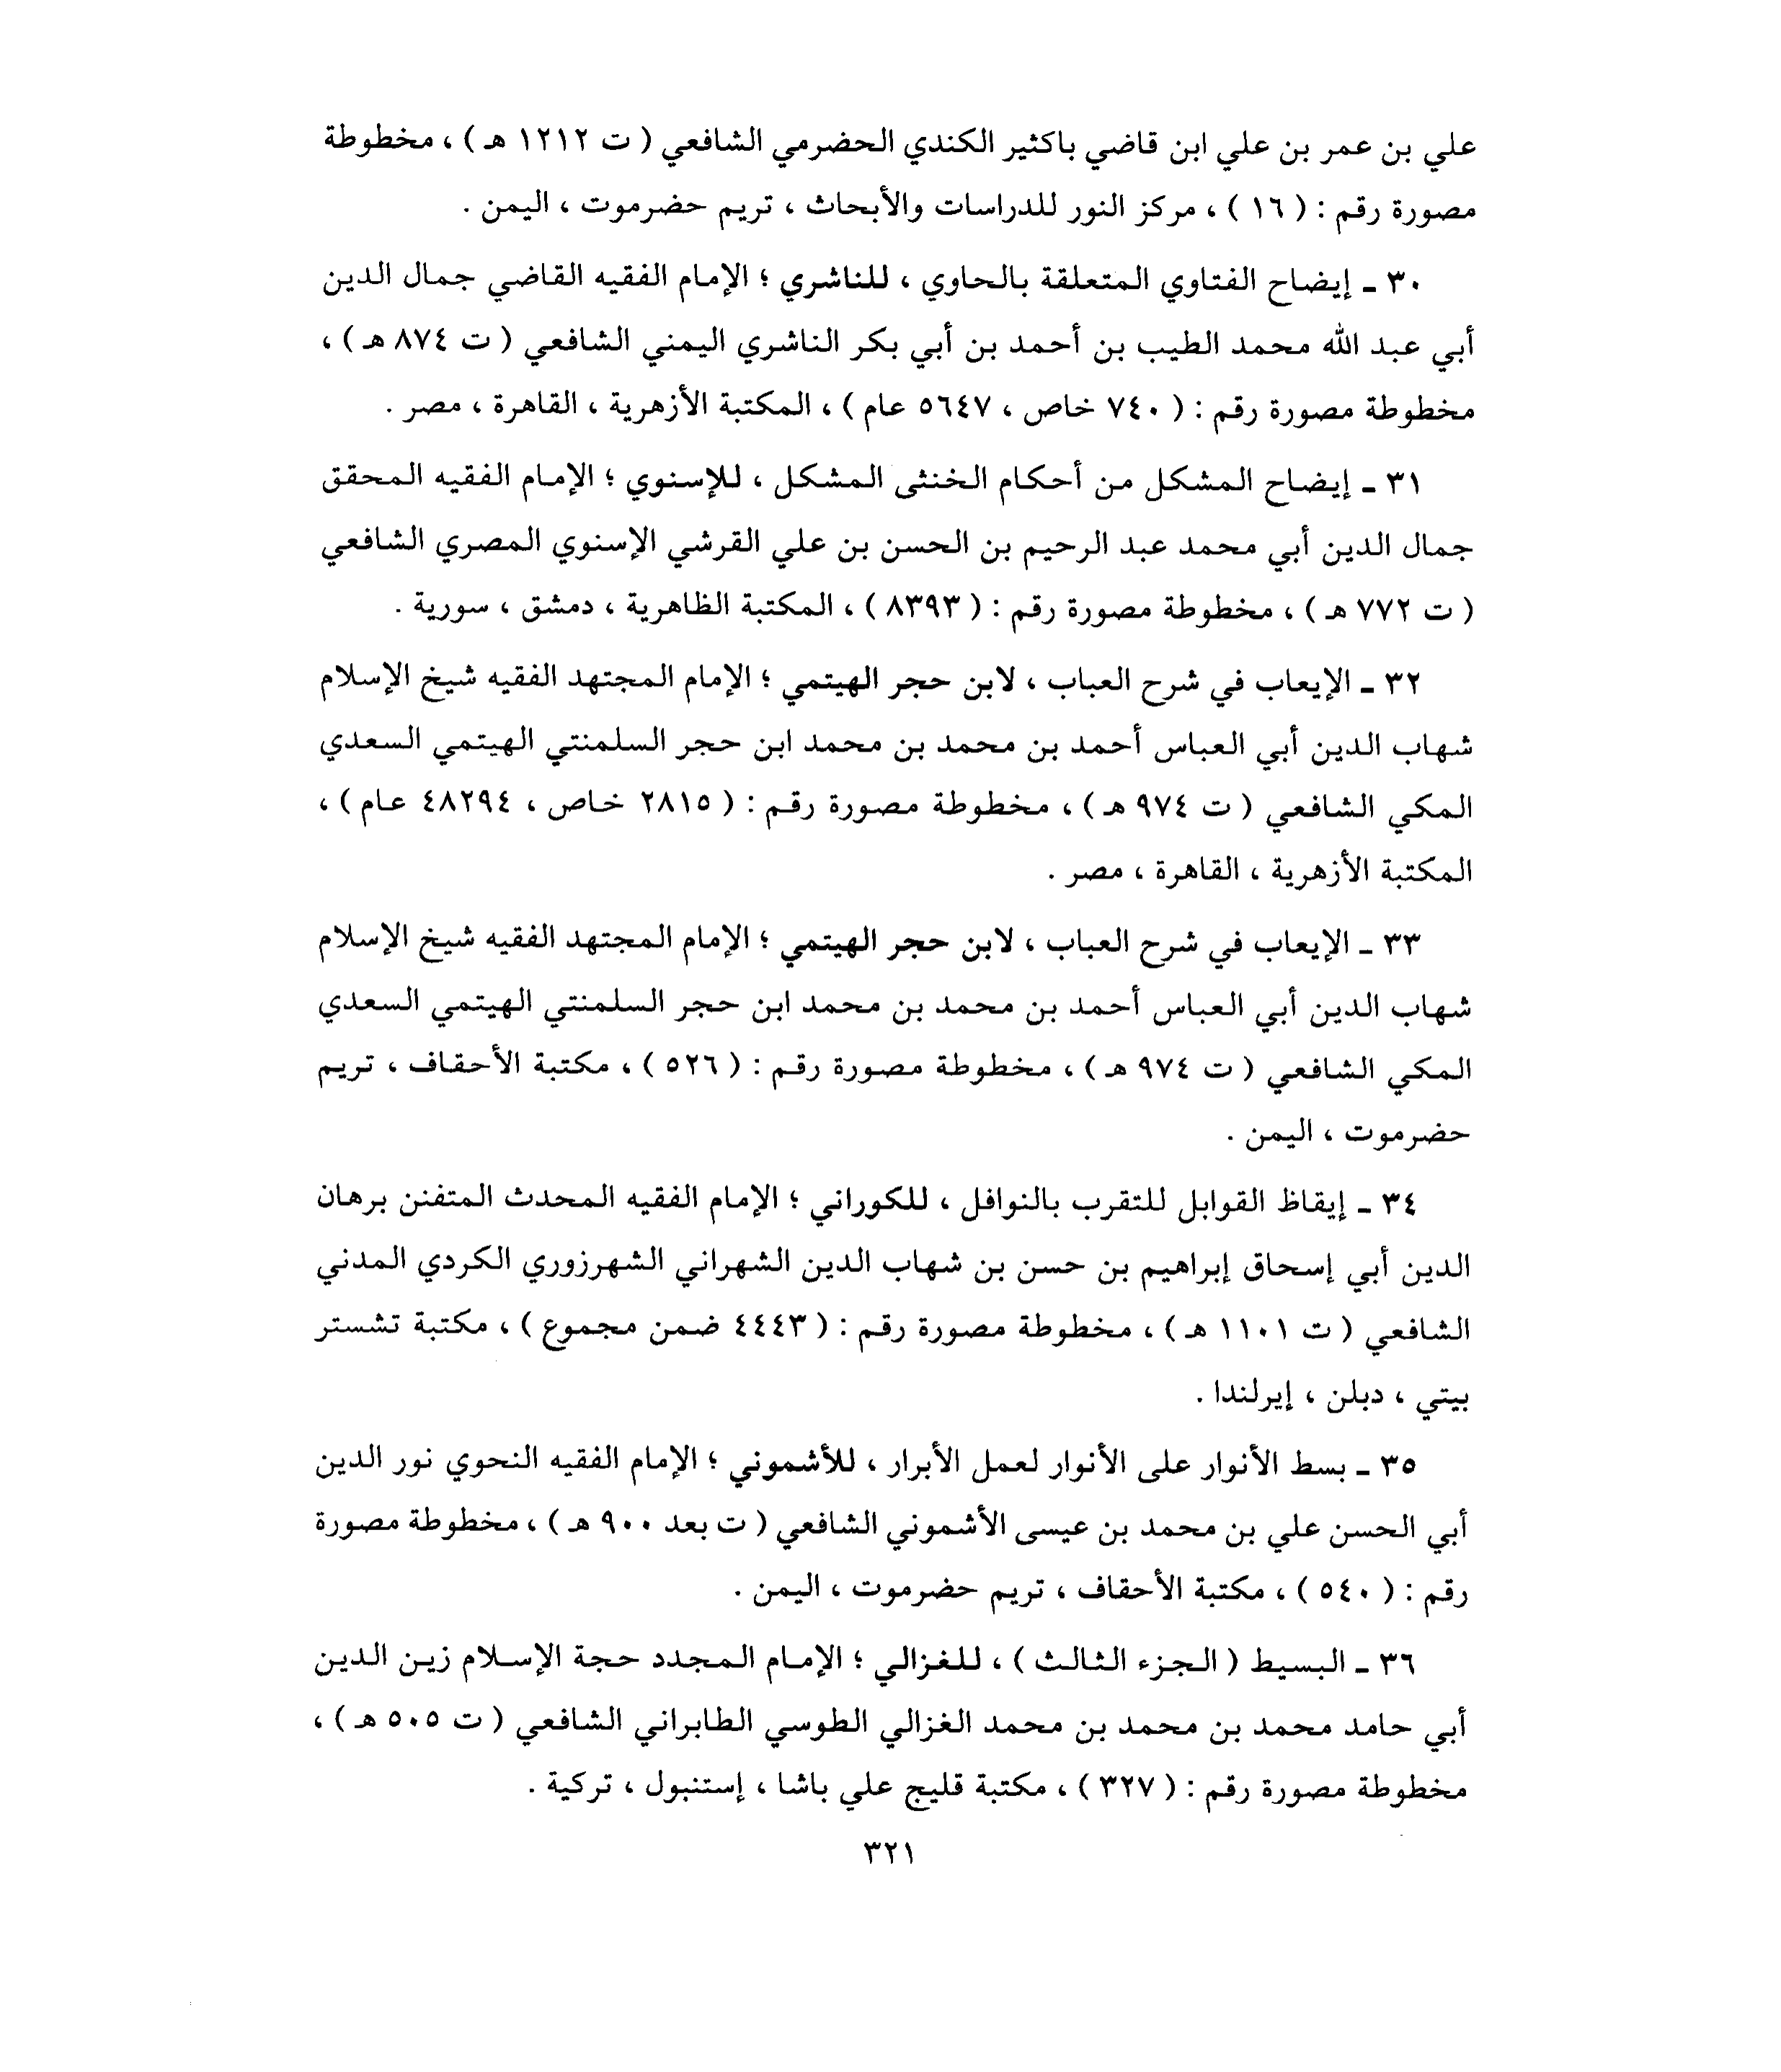 علي بن عمر بن علي ابن قاضي باكثير الكندي الحضرمي الشافعي ( ت ١٢١٢ هـ ) ، مخطوطة
مصورة رقم : ( ١٦ ) ، مركز النور للدراسات والأبحاث ، تريم حضرموت ، اليمن .
٣٠ ـ إيضاح الفتاوي المتعلقة بالحاوي ، للناشري ؛ الإمام الفقيه القاضي جمال الدين
أبي عبد الله محمد الطيب بن أحمد بن أبي بكر الناشري اليمني الشافعي ( ت ٨٧٤ هـ ) ،
مخطوطة مصورة رقم : ( ٧٤٠ خاص ، ٥٦٤٧ عام ) ، المكتبة الأزهرية ، القاهرة ، مصر .
٣١ ـ إيضاح المشكل من أحكام الخنثى المشكل ، للإسنوي ؛ الإمام الفقيه المحقق
جمال الدين أبي محمد عبد الرحيم بن الحسن بن علي القرشي الإسنوي المصري الشافعي
( ت ٧٧٢ هـ ) ، مخطوطة مصورة رقم : ( ٨٣٩٣ ) ، المكتبة الظاهرية ، دمشق ، سورية .
٣٢ ـ الإيعاب في شرح العباب ، لابن حجر الهيتمي ؛ الإمام المجتهد الفقيه شيخ الإسلام
شهاب الدين أبي العباس أحمد بن محمد بن محمد ابن حجر السلمنتي الهيتمي السعدي
المكي الشافعي ( ت ٩٧٤ هـ ) ، مخطوطة مصورة رقم : ( ٢٨١٥ خاص ، ٤٨٢٩٤ عام ) ،
المكتبة الأزهرية ، القاهرة ، مصر .
٣٣ ـ الإيعاب في شرح العباب ، لابن حجر الهيتمي ؛ الإمام المجتهد الفقيه شيخ الإسلام
شهاب الدين أبي العباس أحمد بن محمد بن محمد ابن حجر السلمنتي الهيتمي السعدي
المكي الشافعي ( ت ٩٧٤ هـ ) ، مخطوطة مصورة رقم : ( ٥٢٦ ) ، مكتبة الأحقاف ، تريم
حضرموت ، اليمن .
٣٤ ـ إيقاظ القوابل للتقرب بالنوافل ، للكوراني ؛ الإمام الفقيه المحدث المتفنن برهان
الدين أبي إسحاق إبراهيم بن حسن بن شهاب الدين الشهراني الشهرزوري الكردي المدني
الشافعي ( ت ١١٠١ هـ ) ، مخطوطة مصورة رقم : ( ٤٤٤٣ ضمن مجموع ) ، مكتبة تشستر
بيتي ، دبلن ، إيرلندا .
٣٥ ـ بسط الأنوار على الأنوار لعمل الأبرار ، للأشموني ؛ الإمام الفقيه النحوي نور الدين
أبي الحسن علي بن محمد بن عيسى الأشموني الشافعي ( ت بعد ٩٠٠ هـ ) ، مخطوطة مصورة
رقم : ( ٥٤٠ ) ، مكتبة الأحقاف ، تريم حضرموت ، اليمن .
٣٦ ـ البسيط ( الجزء الثالث ) ، للغزالي ؛ الإمام المجدد حجة الإسلام زين الدين
أبي حامد محمد بن محمد بن محمد الغزالي الطوسي الطابراني الشافعي ( ت ٥٠٥ هـ ) ،
مخطوطة مصورة رقم : ( ٣٢٧ ) ، مكتبة قليج علي باشا ، إستنبول ، تركية .
٣٢١